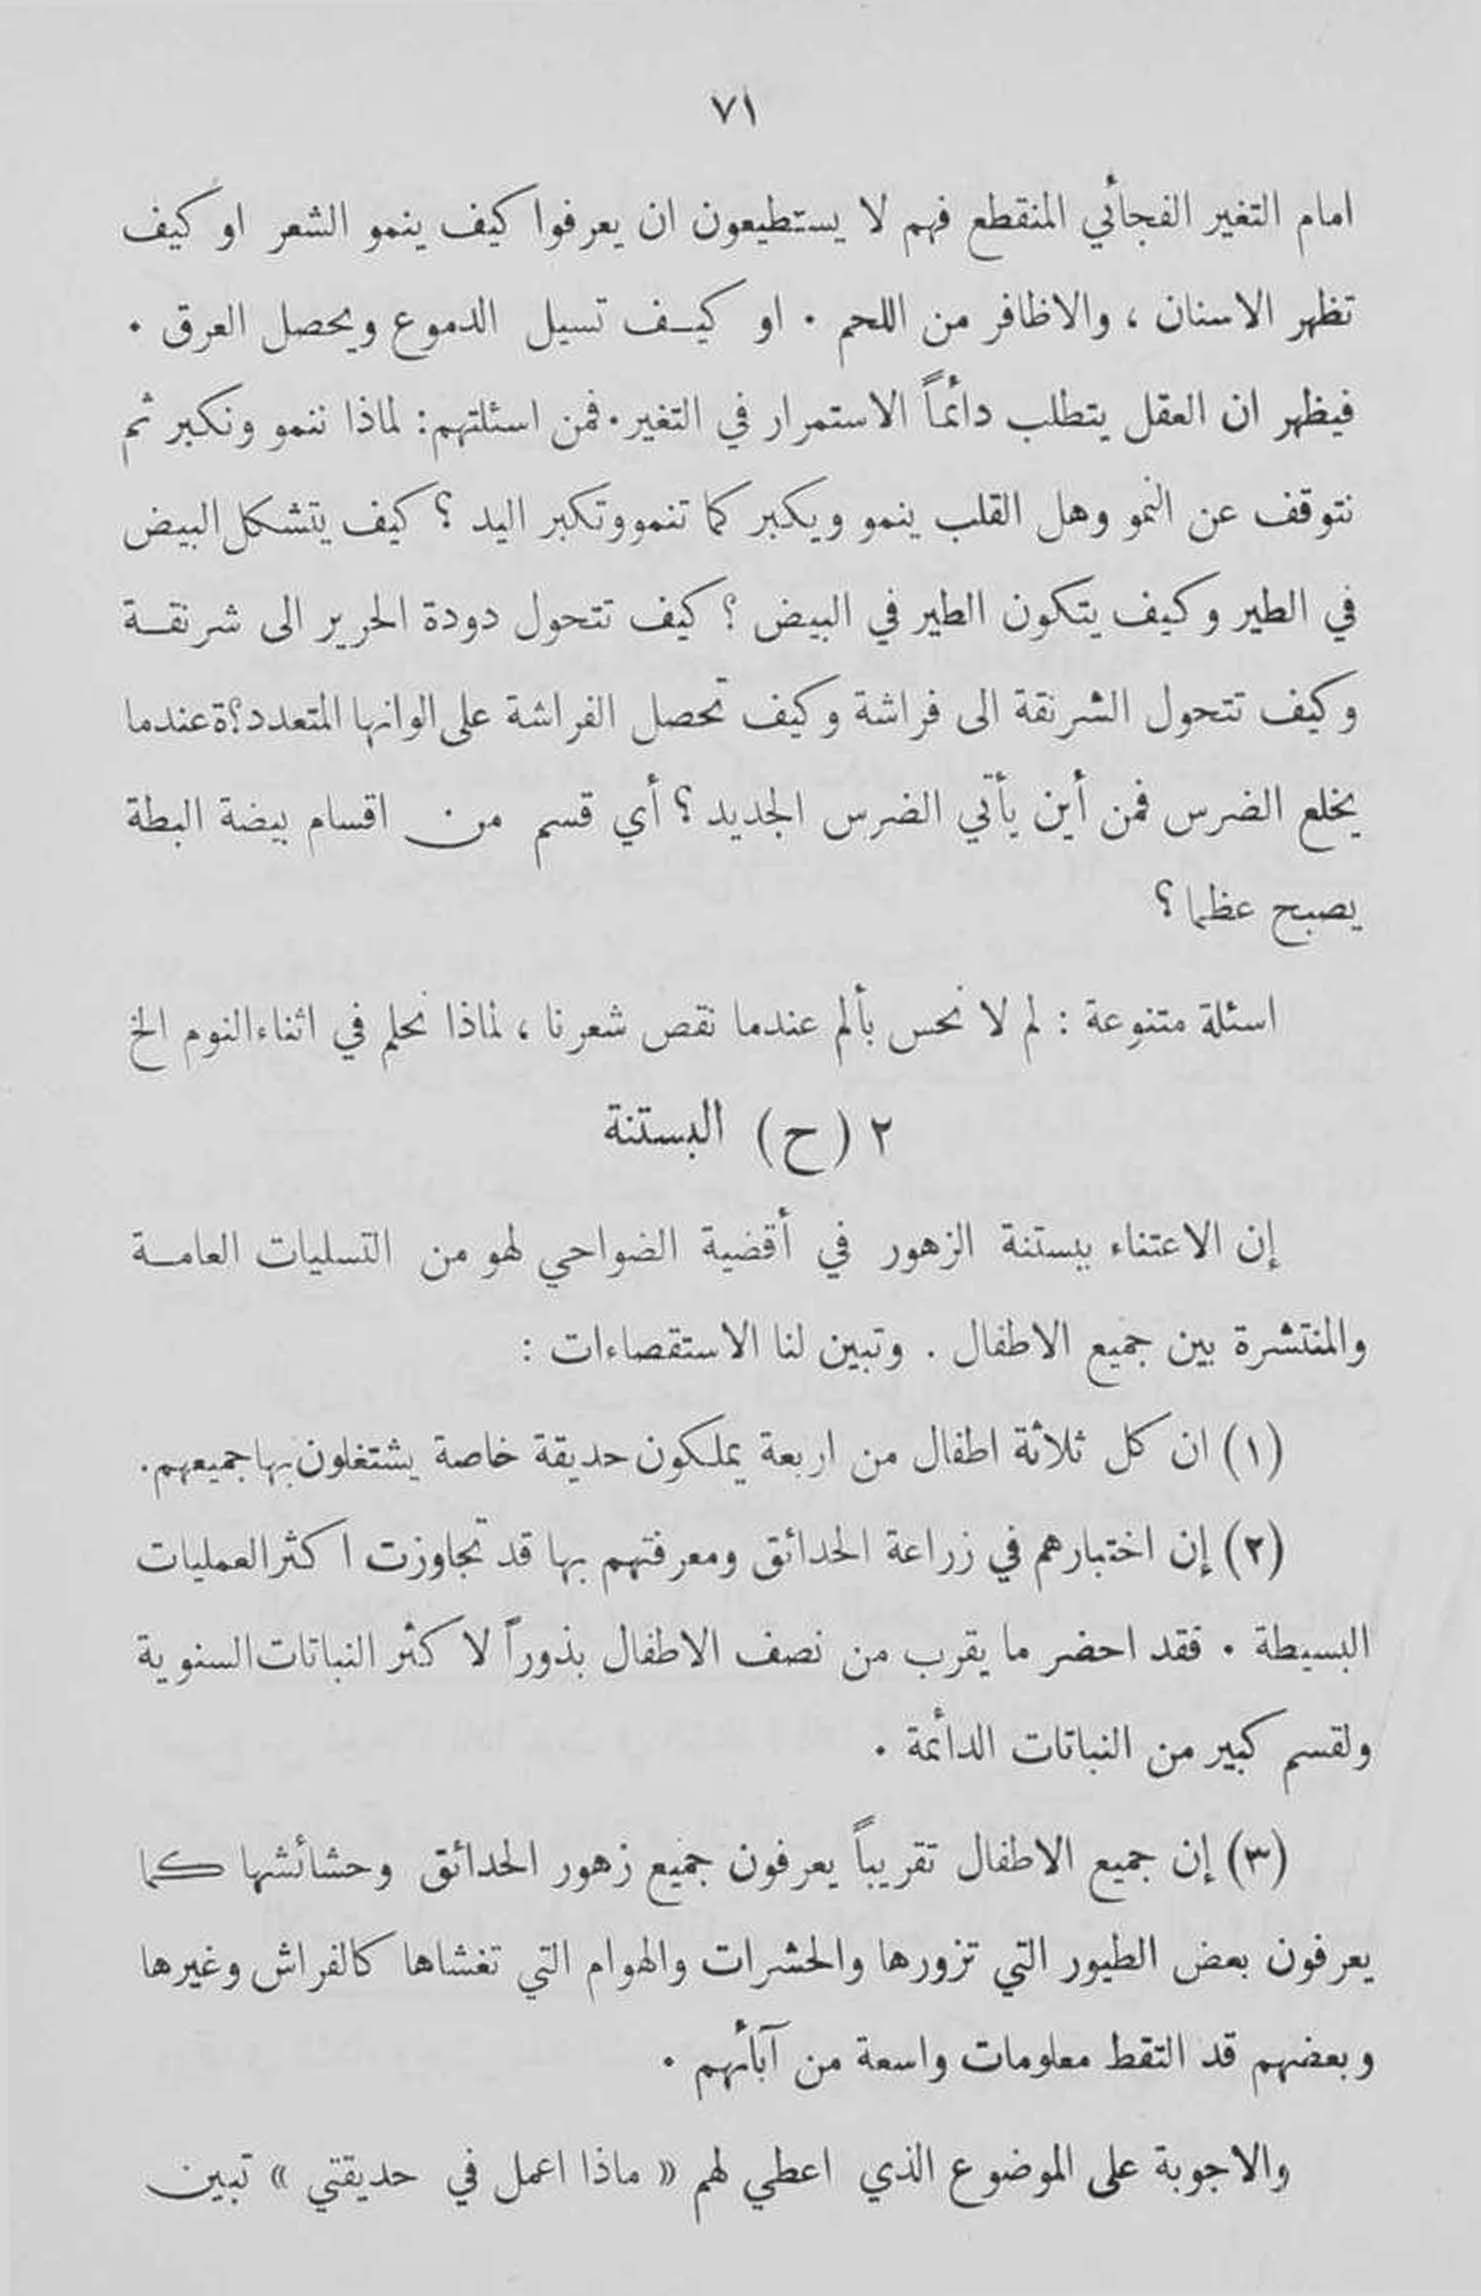 ٧١
امام التغير الفجأئي المنقطع فهم لا يستطيعون ان يعرفوا كيف ينمو الشعر او كيف
تظهر الاسنان ، والاظافر من اللحم . او كيف تسيل الدموع ويحصل العرق .
فيظهر ان العقل يتطلب دأئماً الاستمرار في التغير . فمن اسئلتهم : لماذا ننمو ونكبر ثم
نتوقف عن النمو وهل القلب ينمو ويكبر كما تنمو وتكبر اليد ؟ كيف يتشكل البيض
في الطير وكيف يتكون الطير في البيض ؟ كيف تتحول دودة الحرير الى شرنقة
وكيف تتحول الشرنقة الى فراشة وكيف تحصل الفراشة على الوانها المتعدد؟ة عندما
يخلع الضرس فمن أين يأتي الضرس الجديد ؟ أي قسم من اقسام بيضة البطة
يصبح عظما ؟
اسئلة متنوعة : لم لا نحس بألم عندما نقص شعرنا ، لماذا نحلم في اثناء النوم الخ
٢ (ح) البستنة
إن الاعتناء ببستنة الزهور في أقضية الضواحي لهو من التسليات العامة
والمنتشرة بين جميع الاطفال . وتبين لنا الاستقصاءات :
(١) ان كل ثلاثة اطفال من اربعة يملكون حديقة خاصة يشتغلون بها جميعهم .
(٢) إن اختبارهم في زراعة الحدائق ومعرفتهم بها قد تجاوزت اكثر العمليات
البسيطة . فقد احضر ما يقرب من نصف الاطفال بذوراً لا كثر النباتات السنوية
ولقسم كبير من النباتات الدأئمة .
(٣) إن جميع الاطفال تقريباً يعرفون جميع زهور الحدائق وحشائشها كما
يعرفون بعض الطيور التي تزورها والحشرات والهوام التي تغشاها كالفراش وغيرها
وبعضهم قد التقط معلومات واسعة من آبأئهم .
والاجوبة على الموضوع الذي اعطي لهم « ماذا اعمل في حديقتي » تبين